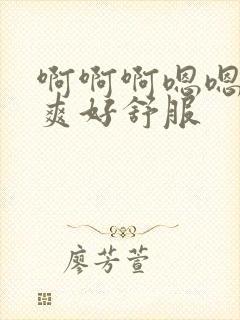 啊啊啊嗯嗯
爽好舒服
廖芳萱